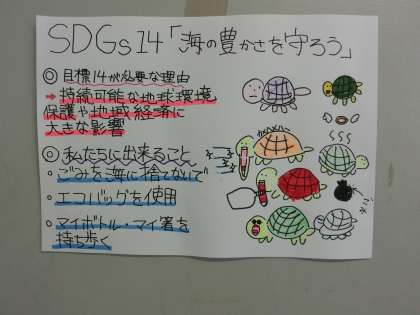 SDGs14「海の豊かさを守ろう」
◎目標14が必要な理由
→持続可能な地球環境
保護や地域経済に
大きな影響
◎私たちに出来ること
・ごみを海に捨てないで
・エコバッグを使用
・マイボトル・マイ箸を
持ち歩く